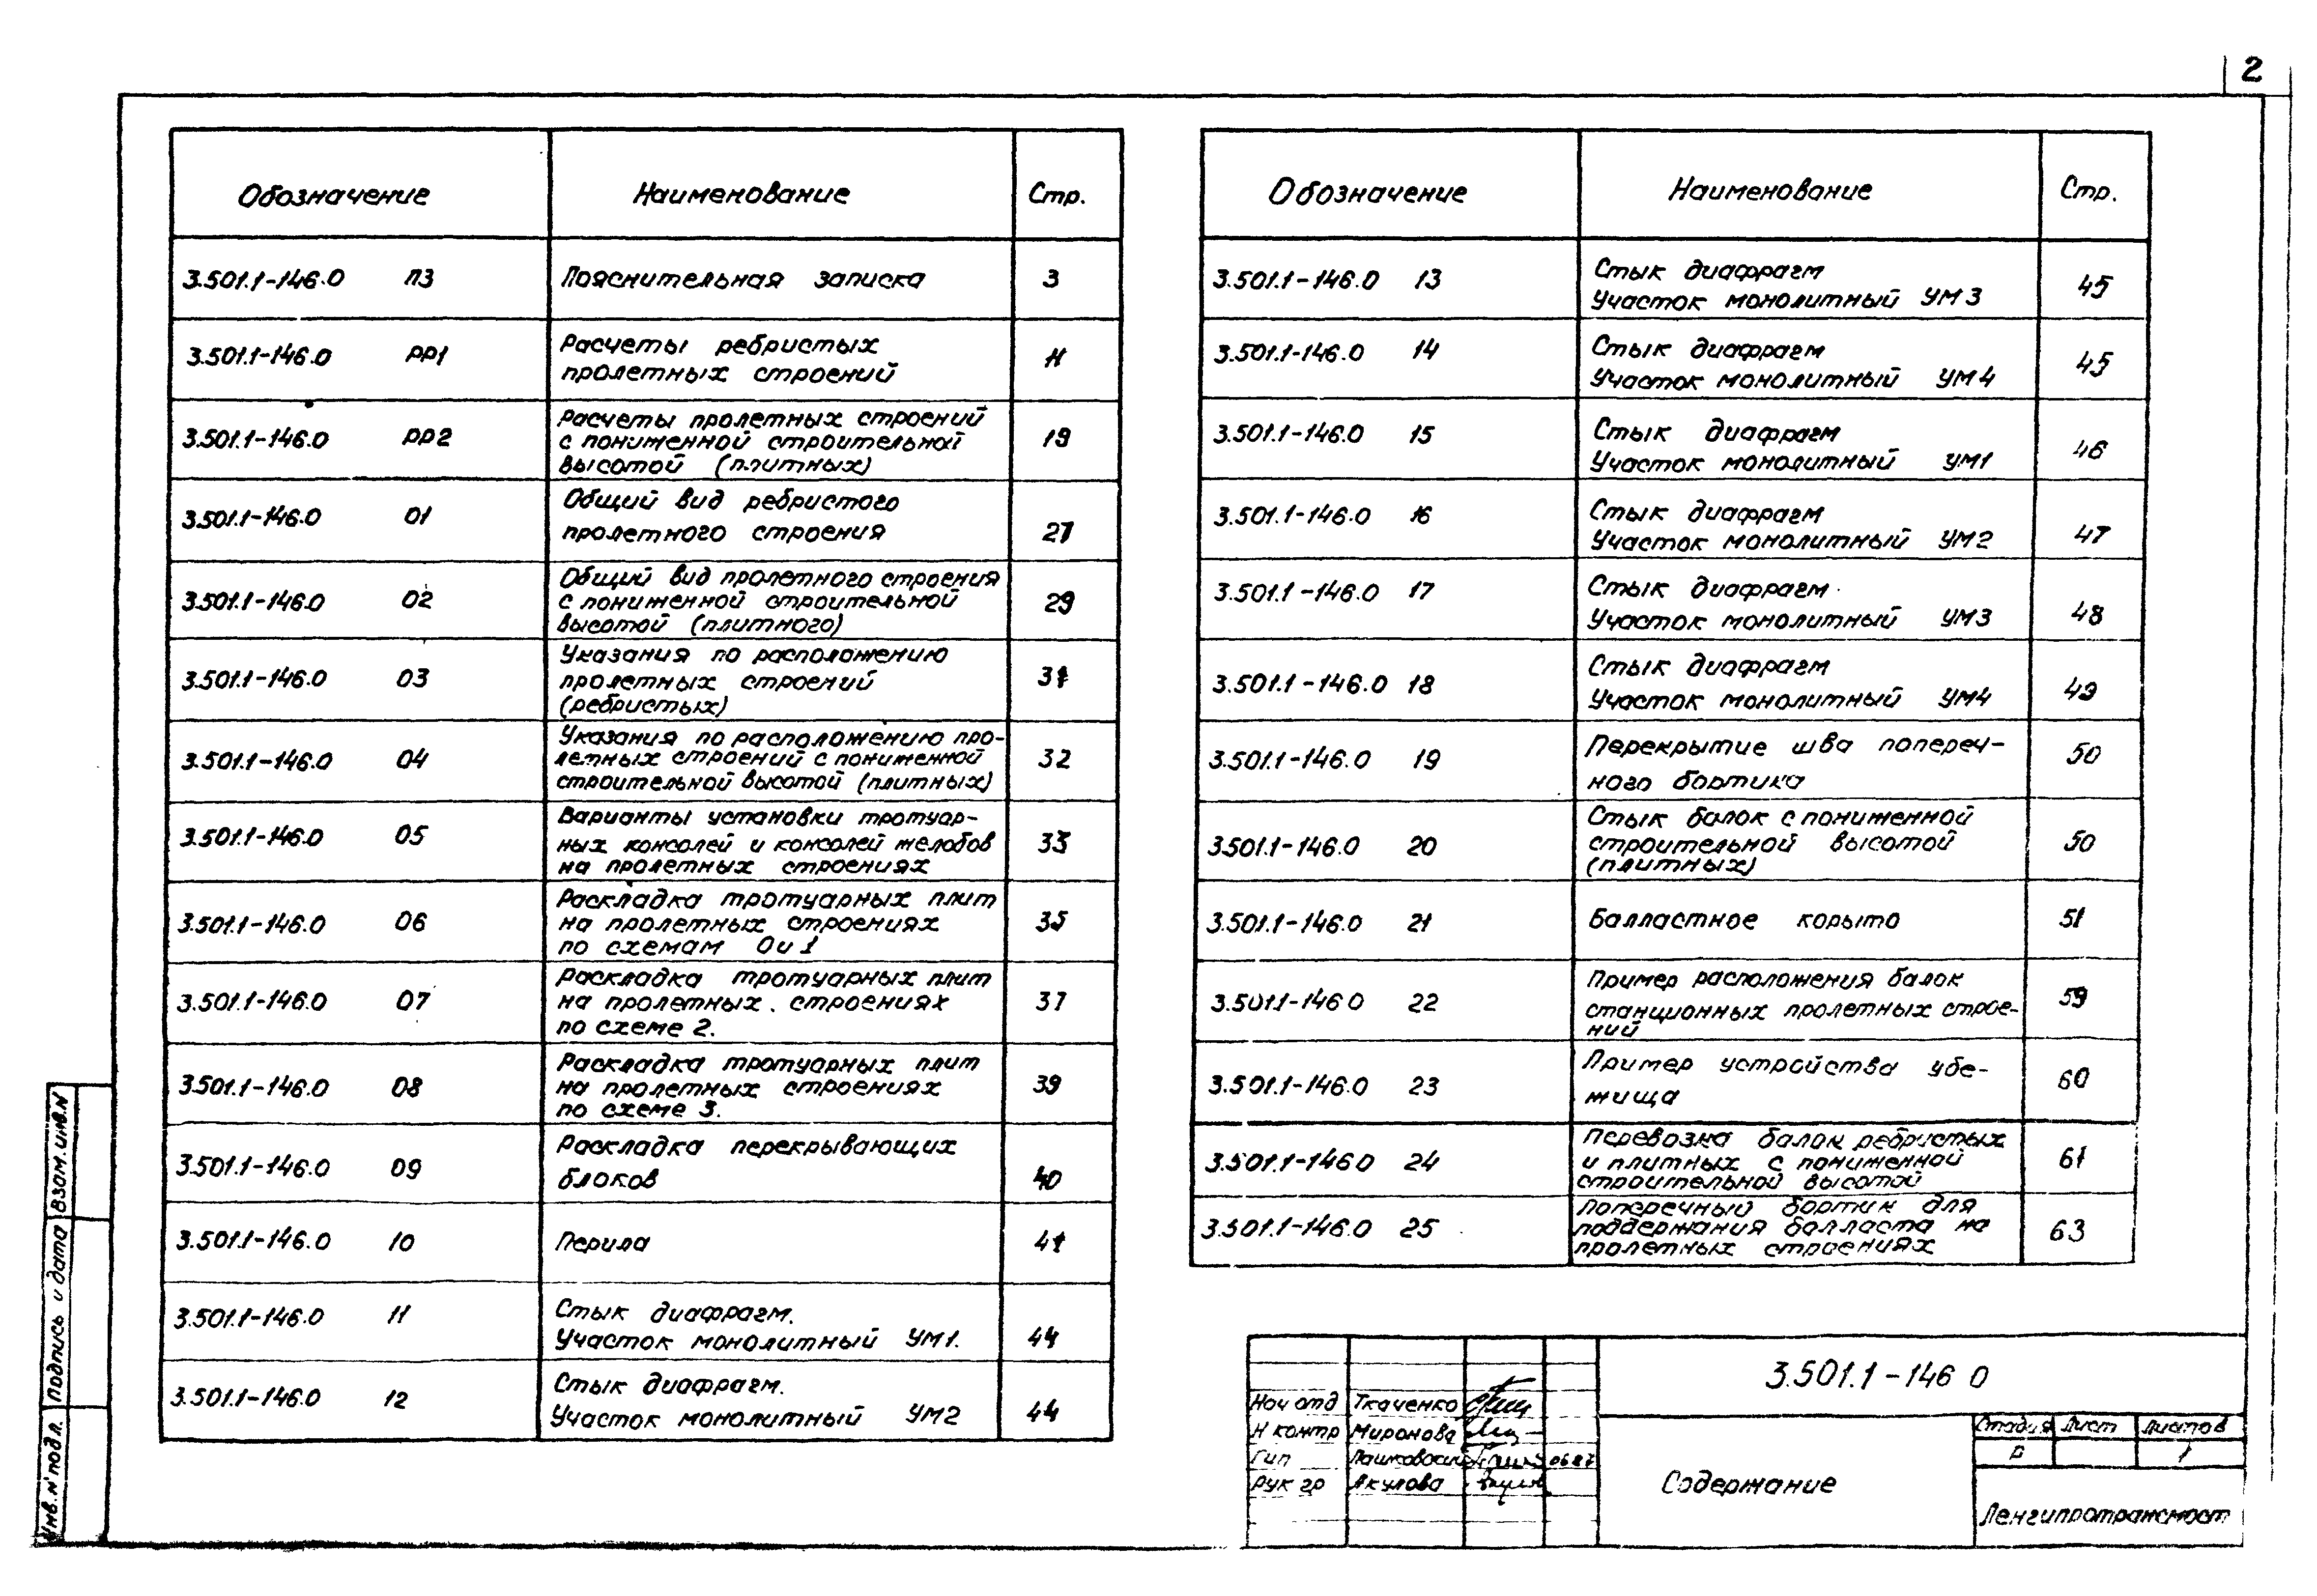 2
Обозначение Наименование Стр.
3.501.1-146.0 ПЗ Пояснительная записка 3
3.501.1-146.0 РР1 Расчеты ребристых
пролетных строений 11
3.501.1-146.0 РР2 Расчеты пролетных строений
с пониженной строительной
высотой (плитных) 19
3.501.1-146.0 01 Общий вид ребристого
пролетного строения 27
3.501.1-146.0 02 Общий вид пролетного строения
с пониженной строительной
высотой (плитного) 29
3.501.1-146.0 03 Указания по расположению
пролетных строений
(ребристых) 31
3.501.1-146.0 04 Указания по расположению про-
летных строений с пониженной
строительной высотой (плитных) 32
3.501.1-146.0 05 Варианты установки тротуар-
ных консолей и консолей желобов
на пролетных строениях 33
3.501.1-146.0 06 Раскладка тротуарных плит
на пролетных строениях
по схемам 0 и 1 35
3.501.1-146.0 07 Раскладка тротуарных плит
на пролетных строениях
по схеме 2. 37
3.501.1-146.0 08 Раскладка тротуарных плит
на пролетных строениях
по схеме 3. 39
3.501.1-146.0 09 Раскладка перекрывающих
блоков 40
3.501.1-146.0 10 Перила 41
3.501.1-146.0 11 Стык диафрагм.
Участок монолитный УМ1. 44
3.501.1-146.0 12 Стык диафрагм.
Участок монолитный УМ2 44
Обозначение Наименование Стр.
3.501.1-146.0 13 Стык диафрагм
Участок монолитный УМ3 45
3.501.1-146.0 14 Стык диафрагм
Участок монолитный УМ4 45
3.501.1-146.0 15 Стык диафрагм
Участок монолитный УМ1 46
3.501.1-146.0 16 Стык диафрагм
Участок монолитный УМ2 47
3.501.1-146.0 17 Стык диафрагм
Участок монолитный УМ3 48
3.501.1-146.0 18 Стык диафрагм
Участок монолитный УМ4 49
3.501.1-146.0 19 Перекрытие шва попереч-
ного бортика 50
3.501.1-146.0 20 Стык балок с пониженной
строительной высотой
(плитных) 50
3.501.1-146.0 21 Балластное корыто 51
3.501.1-146 0 22 Пример расположения балок
станционных пролетных строе-
ний 59
3.501.1-146.0 23 Пример устройства убе-
жища 60
3.501.1-146 0 24 Перевозка балок ребристых
и плитных с пониженной
строительной высотой 61
3.501.1-146.0 25 Поперечный бортик для
поддержания балласта на
пролетных строениях 63
Взам. инв. N
Подпись и дата
Инв. N подл.
3.501.1-146 0
Нач отд Ткаченко
Н контр Миронова
Гип Пашковский 0687
Рук гр Акулова
Содержание
Стадия Лист Листов
Р 1
Ленгипротрансмост